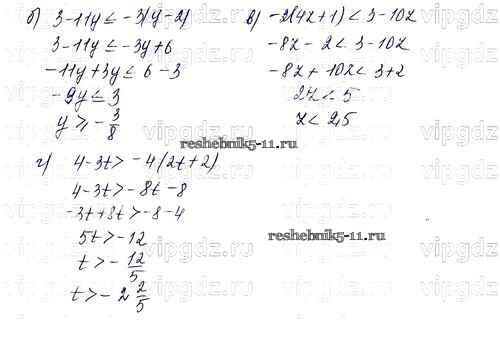 б) 3-11y ≤ -3(y-2)
3-11y ≤ -3y+6
-11y+3y ≤ 6-3
-9y ≤ 3
y ≥ -3/8
в) -2(4z+1) < 3-10z
-8z-2 < 3-10z
-8z+10z < 3+2
2z < 5
z < 2,5
г) 4-3t > -4(2t+2)
4-3t > -8t-8
-3t+8t > -8-4
5t > -12
t > -12/5
t > -2 2/5
reshebnik5-11.ru
reshebnik5-11.ru
vipgdz.ru